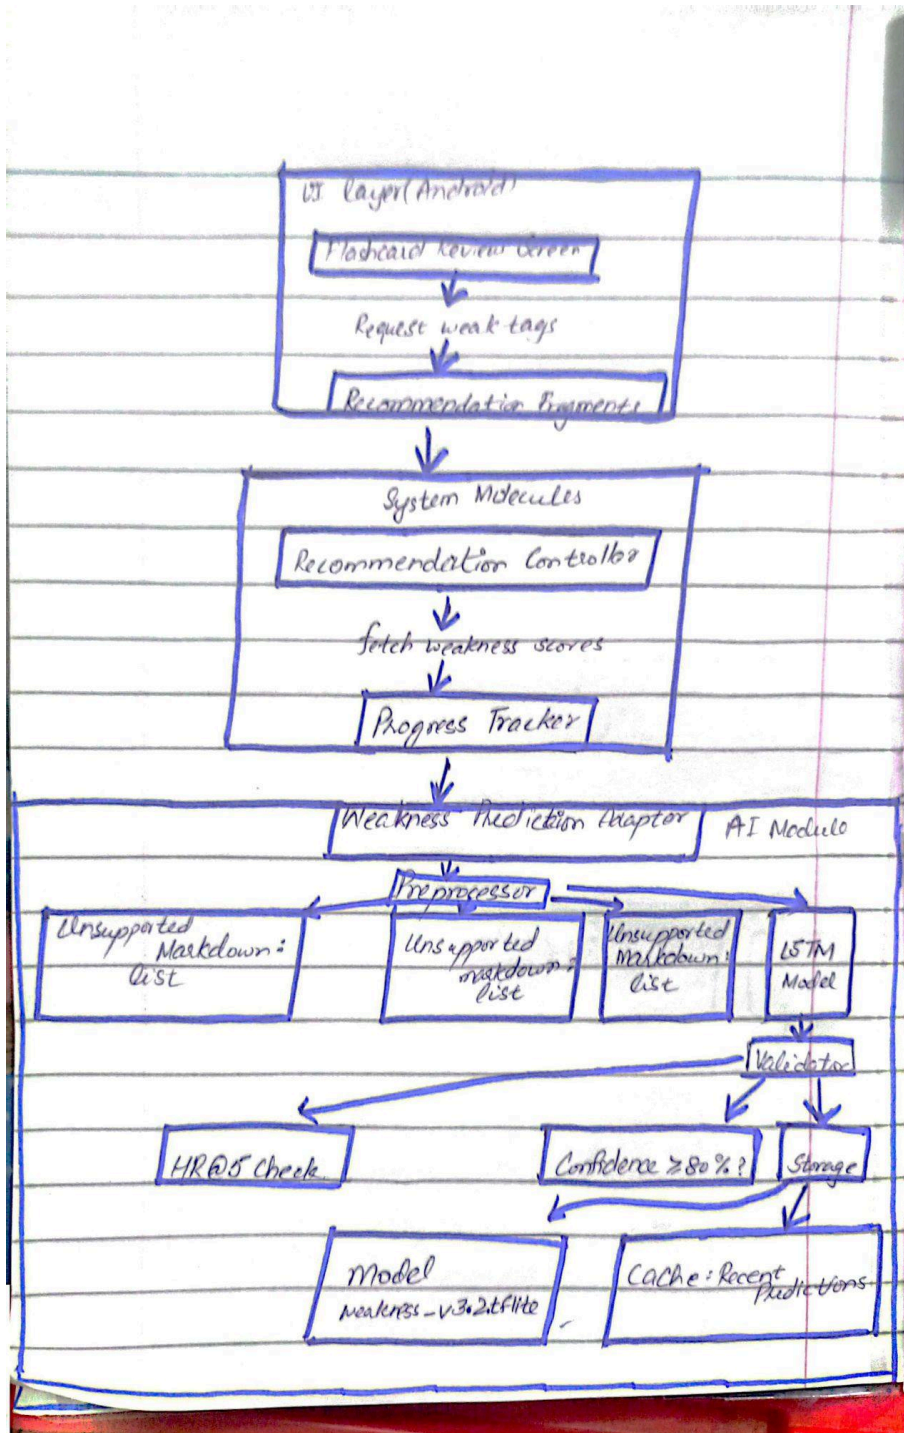 UI layer (Android)
Flashcard Review Screen
Request weak tags
Recommendation Fragments
System Molecules
Recommendation Controller
fetch weakness scores
Progress Tracker
Weakness Prediction Adaptor
AI Module
Preprocessor
Unsupported
Markdown:
list
Unsupported
markdown:
list
Unsupported
Markdown:
list
LSTM
Model
Validator
HR@5 Check
Confidence ≥80%?
Storage
Model
weakness_v3.2.tflite
Cache: Recent
Predictions